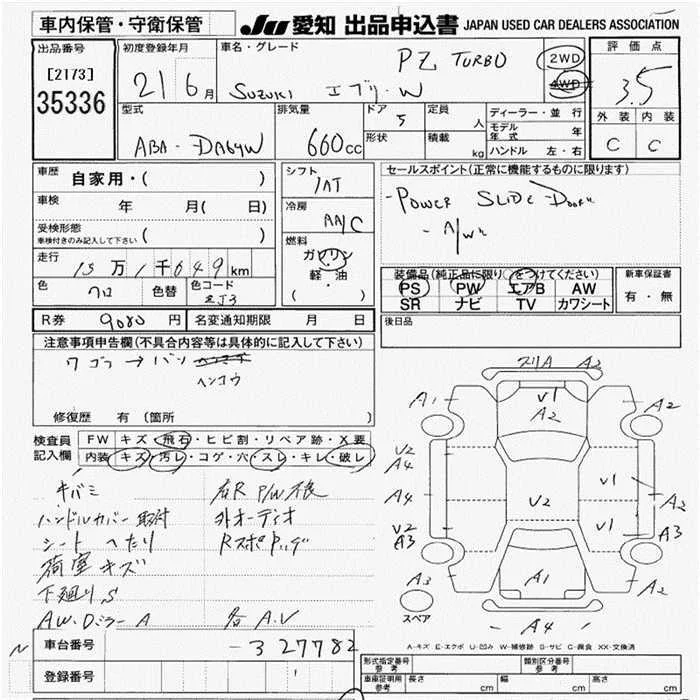 車内保管・守衛保管
JU 愛知 出品申込書 JAPAN USED CAR DEALERS ASSOCIATION
出品番号
[2173]
35336
初度登録年月
21 6月
車名・グレード
PZ TURBO
SUZUKI エブリ・W
2WD
4WD
評価点
3.5
外装 内装
C C
型式
ABA-DA64W
排気量
660cc
ドア
5
形状
定員
人
積載
kg
ディーラー・並行
モデル年式 年
ハンドル 左・右
車歴
自家用・( )
車検
年 月( 日)
受検形態
車検付きのみ記入して下さい ( )
走行
15万1千649km
色
クロ
色替
色コード
ZJ3
シフト
IAT
冷房
AA/C
燃料
ガソリン
軽・油
( )
セールスポイント(正常に機能するものに限ります)
-POWER SLIDE DOOR
装備品(純正品に限り○をつけてください)
PS PW エアB AW
SR ナビ TV カワシート
新車保証書
有・無
R券 9080円
名変通知期限 月 日
後日品
注意事項申告欄(不具合内容等は具体的に記入して下さい)
ワゴン→バン
ヘンコウ
修復歴 有 (箇所 )
検査員記入欄
FW キズ・飛石・ヒビ割・リペア跡・X要
内装 キズ・汚レ・コゲ・穴・スレ・キレ・破レ
キバミ
右R P/W不良
ハンドルカバー取付
外オーディオ
シートへたり
荷室キズ
下廻りS
AW.Dミラー A
各A.V
スリA A2
A1 V1 A2 A2
V2 A4
A4 V2 V1 A2
V2 A3 V1 A3
A3 A1 A2
A4
スペア
A-キズ E-エクボ U-凹み W-補修跡 S-サビ C-腐食 XX-交換済
車台番号
-327782
登録番号
型式指定番号 参考
類別区分番号 参考
車庫証明用 参考
長さ cm 幅 cm 高さ cm